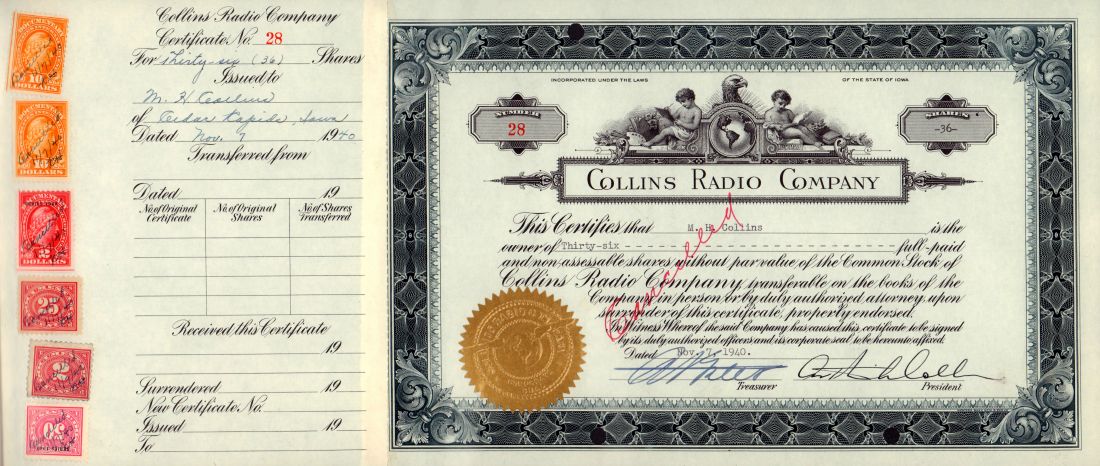 Collins Radio Company
Certificate No. 28
For Thirty-six (36) Shares
Issued to
M. H. Collins
of Cedar Rapids, Iowa
Dated Nov. 7 1940
Transferred from
Dated 19
No. of Original Certificate
No. of Original Shares
No. of Shares Transferred
Received this Certificate
19
19
Surrendered 19
New Certificate No.
Issued 19
To
DOCUMENTARY
10
DOLLARS
DOCUMENTARY
DOLLARS
DOCUMENTARY
2
DOLLARS
25
2
30
INCORPORATED UNDER THE LAWS OF THE STATE OF IOWA
NUMBER
28
SHARES
-36-
COLLINS RADIO COMPANY
This Certifies that M. H. Collins is the
owner of Thirty-six full-paid
and non-assessable shares without par value of the Common Stock of
Collins Radio Company transferable on the books of the
Company in person or by duly authorized attorney upon
surrender of this certificate, properly endorsed.
In Witness Whereof the said Company has caused this certificate to be signed
by its duly authorized officers and its corporate seal to be hereunto affixed.
Dated Nov. 7, 1940.
Treasurer
President
Cancelled